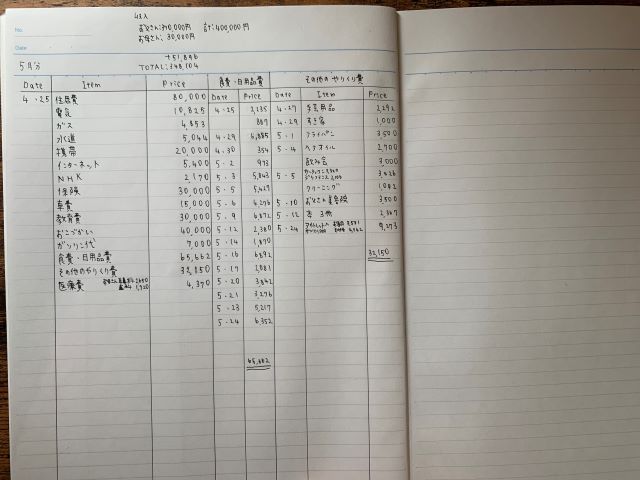 No.
Date
収入
お父さん:370,000円 計:400,000円
お母さん:30,000円
+51,896
5月分 TOTAL:348,104
Date Item Price 食費・日用品費 その他のやりくり費
4・25 住居費 80,000 Date Price Date Item Price
電気 10,825 4・25 4・27
ガス 4,853 4・29 1,000
水道 5,044 4・29 5・1 フライパン 3,500
携帯 20,000 4・30 354 5・4 ヘアオイル 2,700
インターネット 5,400 5・2 973 飲み会 3,000
NHK 2,170 5・3 5,843 5・5
保険 30,000 5・5 5,429 クリーニング
車費 15,000 5・6 6,296 5・10 お父さん美容院 3,500
教育費 30,000 5・9 6,872 5・12 本 3冊
おこづかい 40,000 5・12 2,380 5・24 9,273
ガソリン代 7,000 5・14 1,870
食費・日用品費 65,662 5・16 6,892 32,150
その他のやりくり費 32,150 5・17 2,081
医療費 5・20
5・21 3,276
5・23 5,217
5・24 6,352
65,662